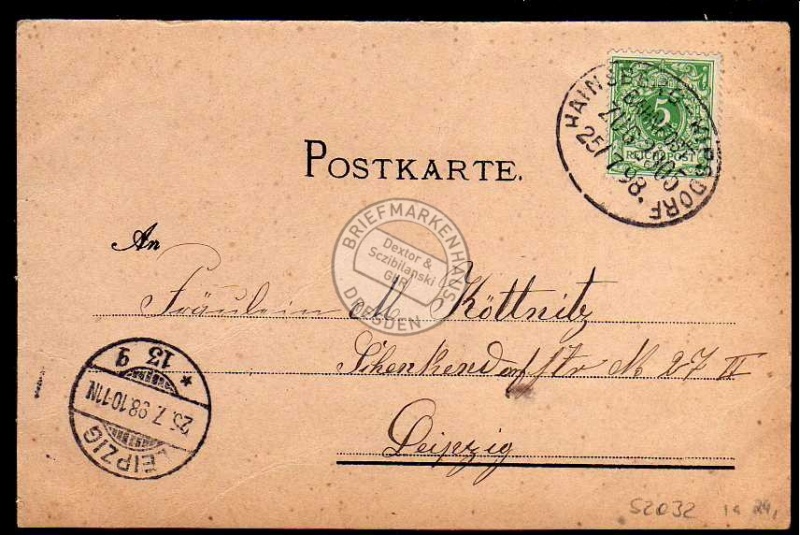 HAINSBERG - KIPSDORF
BAHNPOST
ZUG 2003
25/7.98.
5
REICHSPOST
POSTKARTE.
BRIEFMARKENHAUS
Dextor &
Sczibilanski
GbR
DRESDEN
An
Fräulein M. Köttnitz
Schenkendorfstr № 27 II
Leipzig
LEIPZIG
25.7.98.10-11N
* 13 g
52032 1a 24,